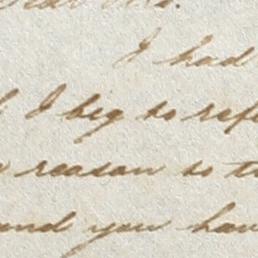 I had
I beg to refe
reason to t
and you hav